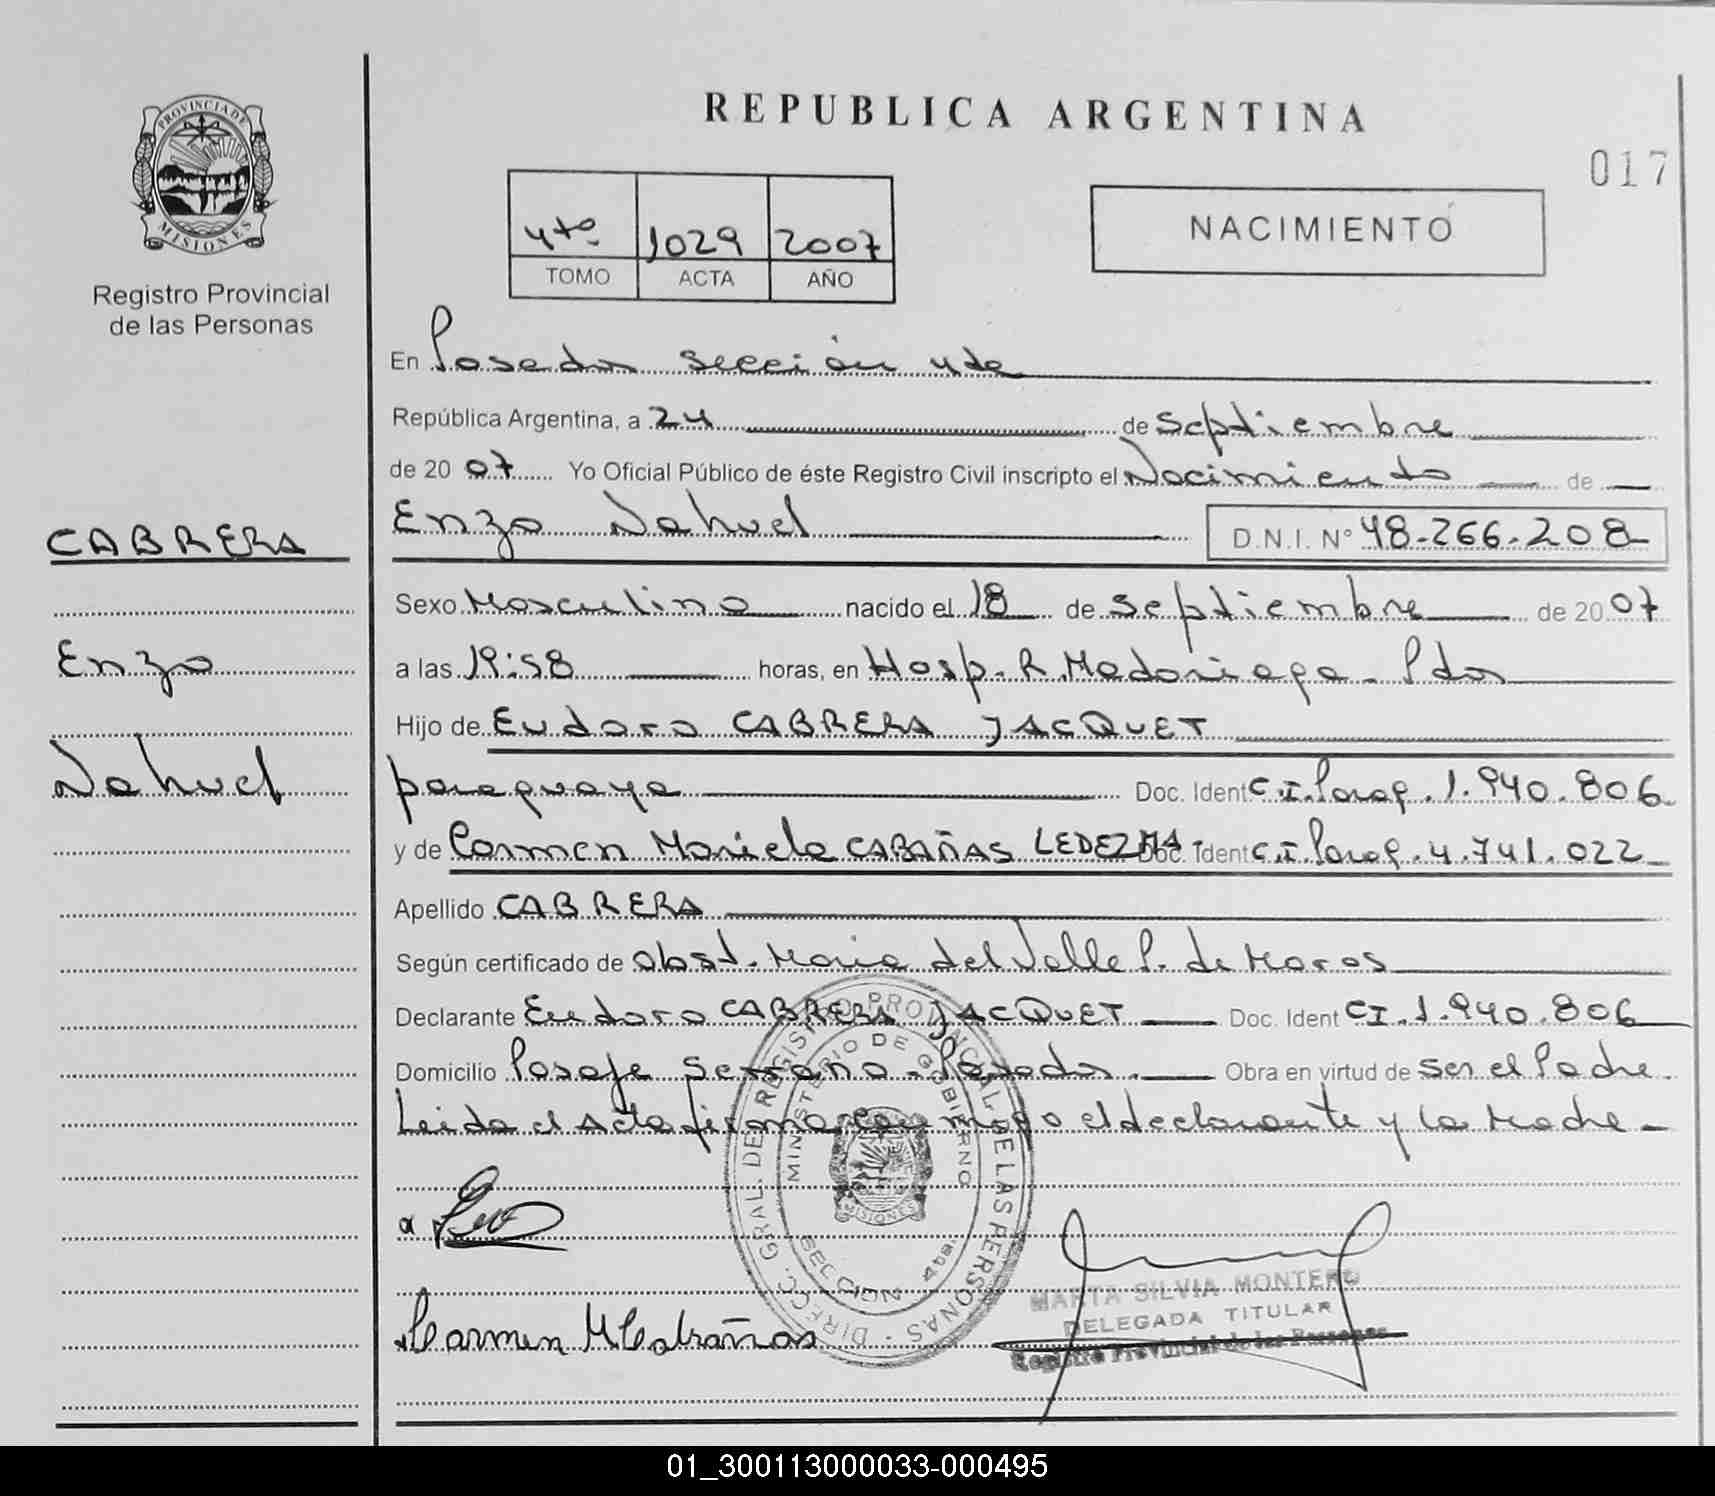 REPUBLICA ARGENTINA
017
PROVINCIA DE
MISIONES
Registro Provincial
de las Personas
4to 1029 2007
TOMO ACTA AÑO
NACIMIENTO
En Posadas sección 4ta
República Argentina, a 24 de Septiembre
de 2007 Yo Oficial Público de éste Registro Civil inscripto el Nacimiento de
CABRERA
Enzo Nahuel D.N.I. Nº 48.266.208
Sexo Masculino nacido el 18 de Septiembre de 2007
Enzo
a las 19:58 horas, en Hosp. R. Madariaga - Pdas
Hijo de Eudoro CABRERA JACQUET
Nahuel
paraguaya Doc. Ident C.I. Parag. 1.940.806
y de Carmen Mariela CABAÑAS LEDEZMA - Doc. Ident C.I Parag. 4.741.022
Apellido CABRERA
Según certificado de obst. Maria del Valle P. de
Declarante Eudoro CABRERA JACQUET Doc. Ident CI. 1.940.806
Domicilio Pasaje Serrano - Posadas. Obra en virtud de ser el Padre.
Leida el Acta firman conmigo el declarante y la Madre -
DIRECC. GRAL. DEL REGISTRO PROVINCIAL DE LAS PERSONAS
MINISTERIO DE GOBIERNO
MISIONES
SECCION 4ta.
Carmen M Cabañas
MARTA SILVIA MONTERO
DELEGADA TITULAR
Registro Provincial de las Personas
01_300113000033-000495